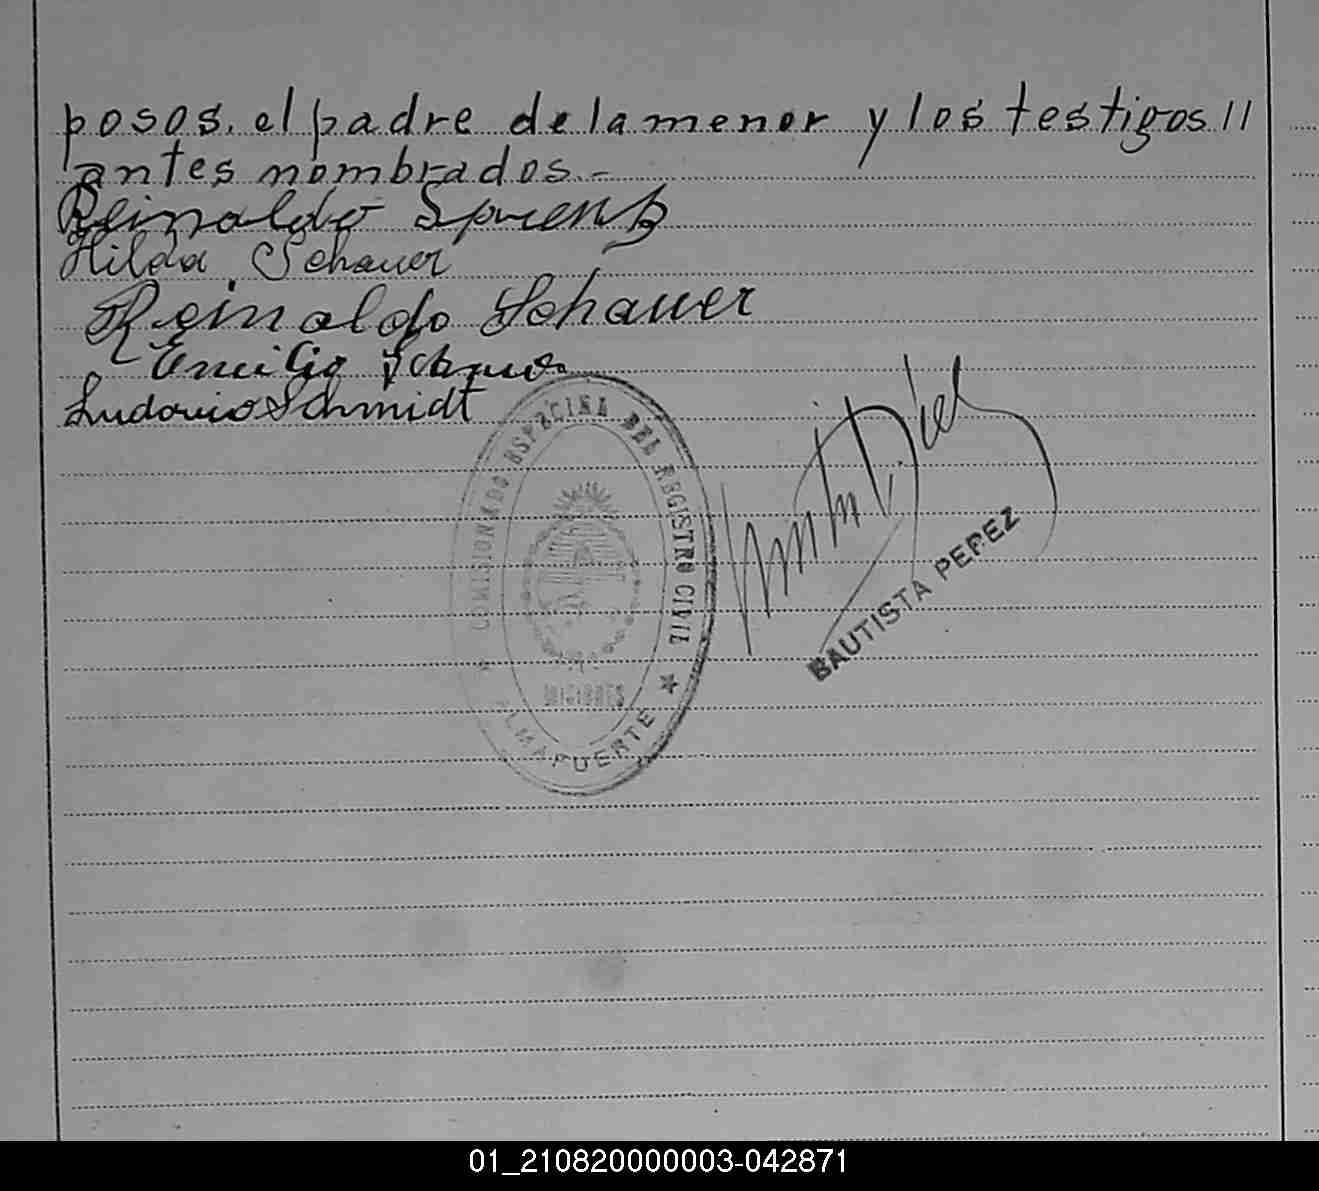 posos, el padre de la menor y los testigos //
antes nombrados.-
Reinaldo Sprenz
Hilda Schauer
Reinaldo Schauer
Emilio
Ludovico Schmidt
COMISIONADO ESPECIAL DEL REGISTRO CIVIL
MISIONES
ALMAFUERTE
BAUTISTA PEREZ
01_210820000003-042871